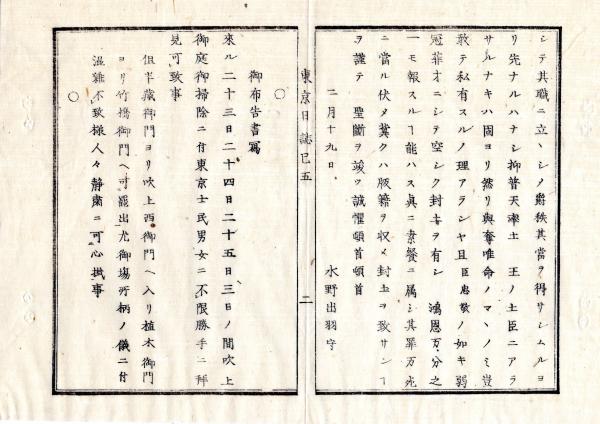 シテ其職ニ立シノ爵秩其當ヲ得サシムルヨ
リ先ナルハナシ抑普天率土王ノ土臣ニアラ
サルナキハ固ヨリ然リ與奪唯命ノマヽノミ豈
敢テ私有スルノ理アランヤ且臣忠敬ノ如キ弱
冠菲才ニシテ空シク封土ヲ有シ 鴻恩万分之
一モ報スルヿ能ハス眞ニ素餐ニ属シ其罪万死
ニ當ル伏テ冀クハ版籍ヲ収メ封土ヲ致サンヿ
ヲ謹テ 聖斷ヲ竢ツ誠懼頓首頓首
二月十九日 水野出羽守
東京日誌巳五 二
○
御布告書寫
來ル二十三日二十四日二十五日三日ノ間吹上
御庭御掃除ニ付東京士民男女ニ不限勝手ニ拜
見可致事
但半藏御門ヨリ吹上西御門ヘ入リ植木御門
ヨリ竹橋御門ヘ可罷出尤御場所柄ノ儀ニ付
混雜不致樣人々靜肅ニ可心掛事
○